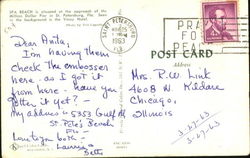 SPA BEACH is situated at the approach of the
Million Dollar Pier in St. Petersburg, Fla. Seen
in the background is the Vinoy Hotel
ST. PETERSBURG
FLA.
1963
PRAY
FOR
PEACE
POST CARD
Dear Anita,
I'm having them
check the embosser
here - as I got it
from here - have you
gotten it yet? -
My address is 5353 Gulf Bl
St. Pete's Beach
Fla -
Love to you
both -
Betty
Mrs. R.W. Link
4608 N. Kildare
Chicago,
Illinois
3-27-63
3-27-63